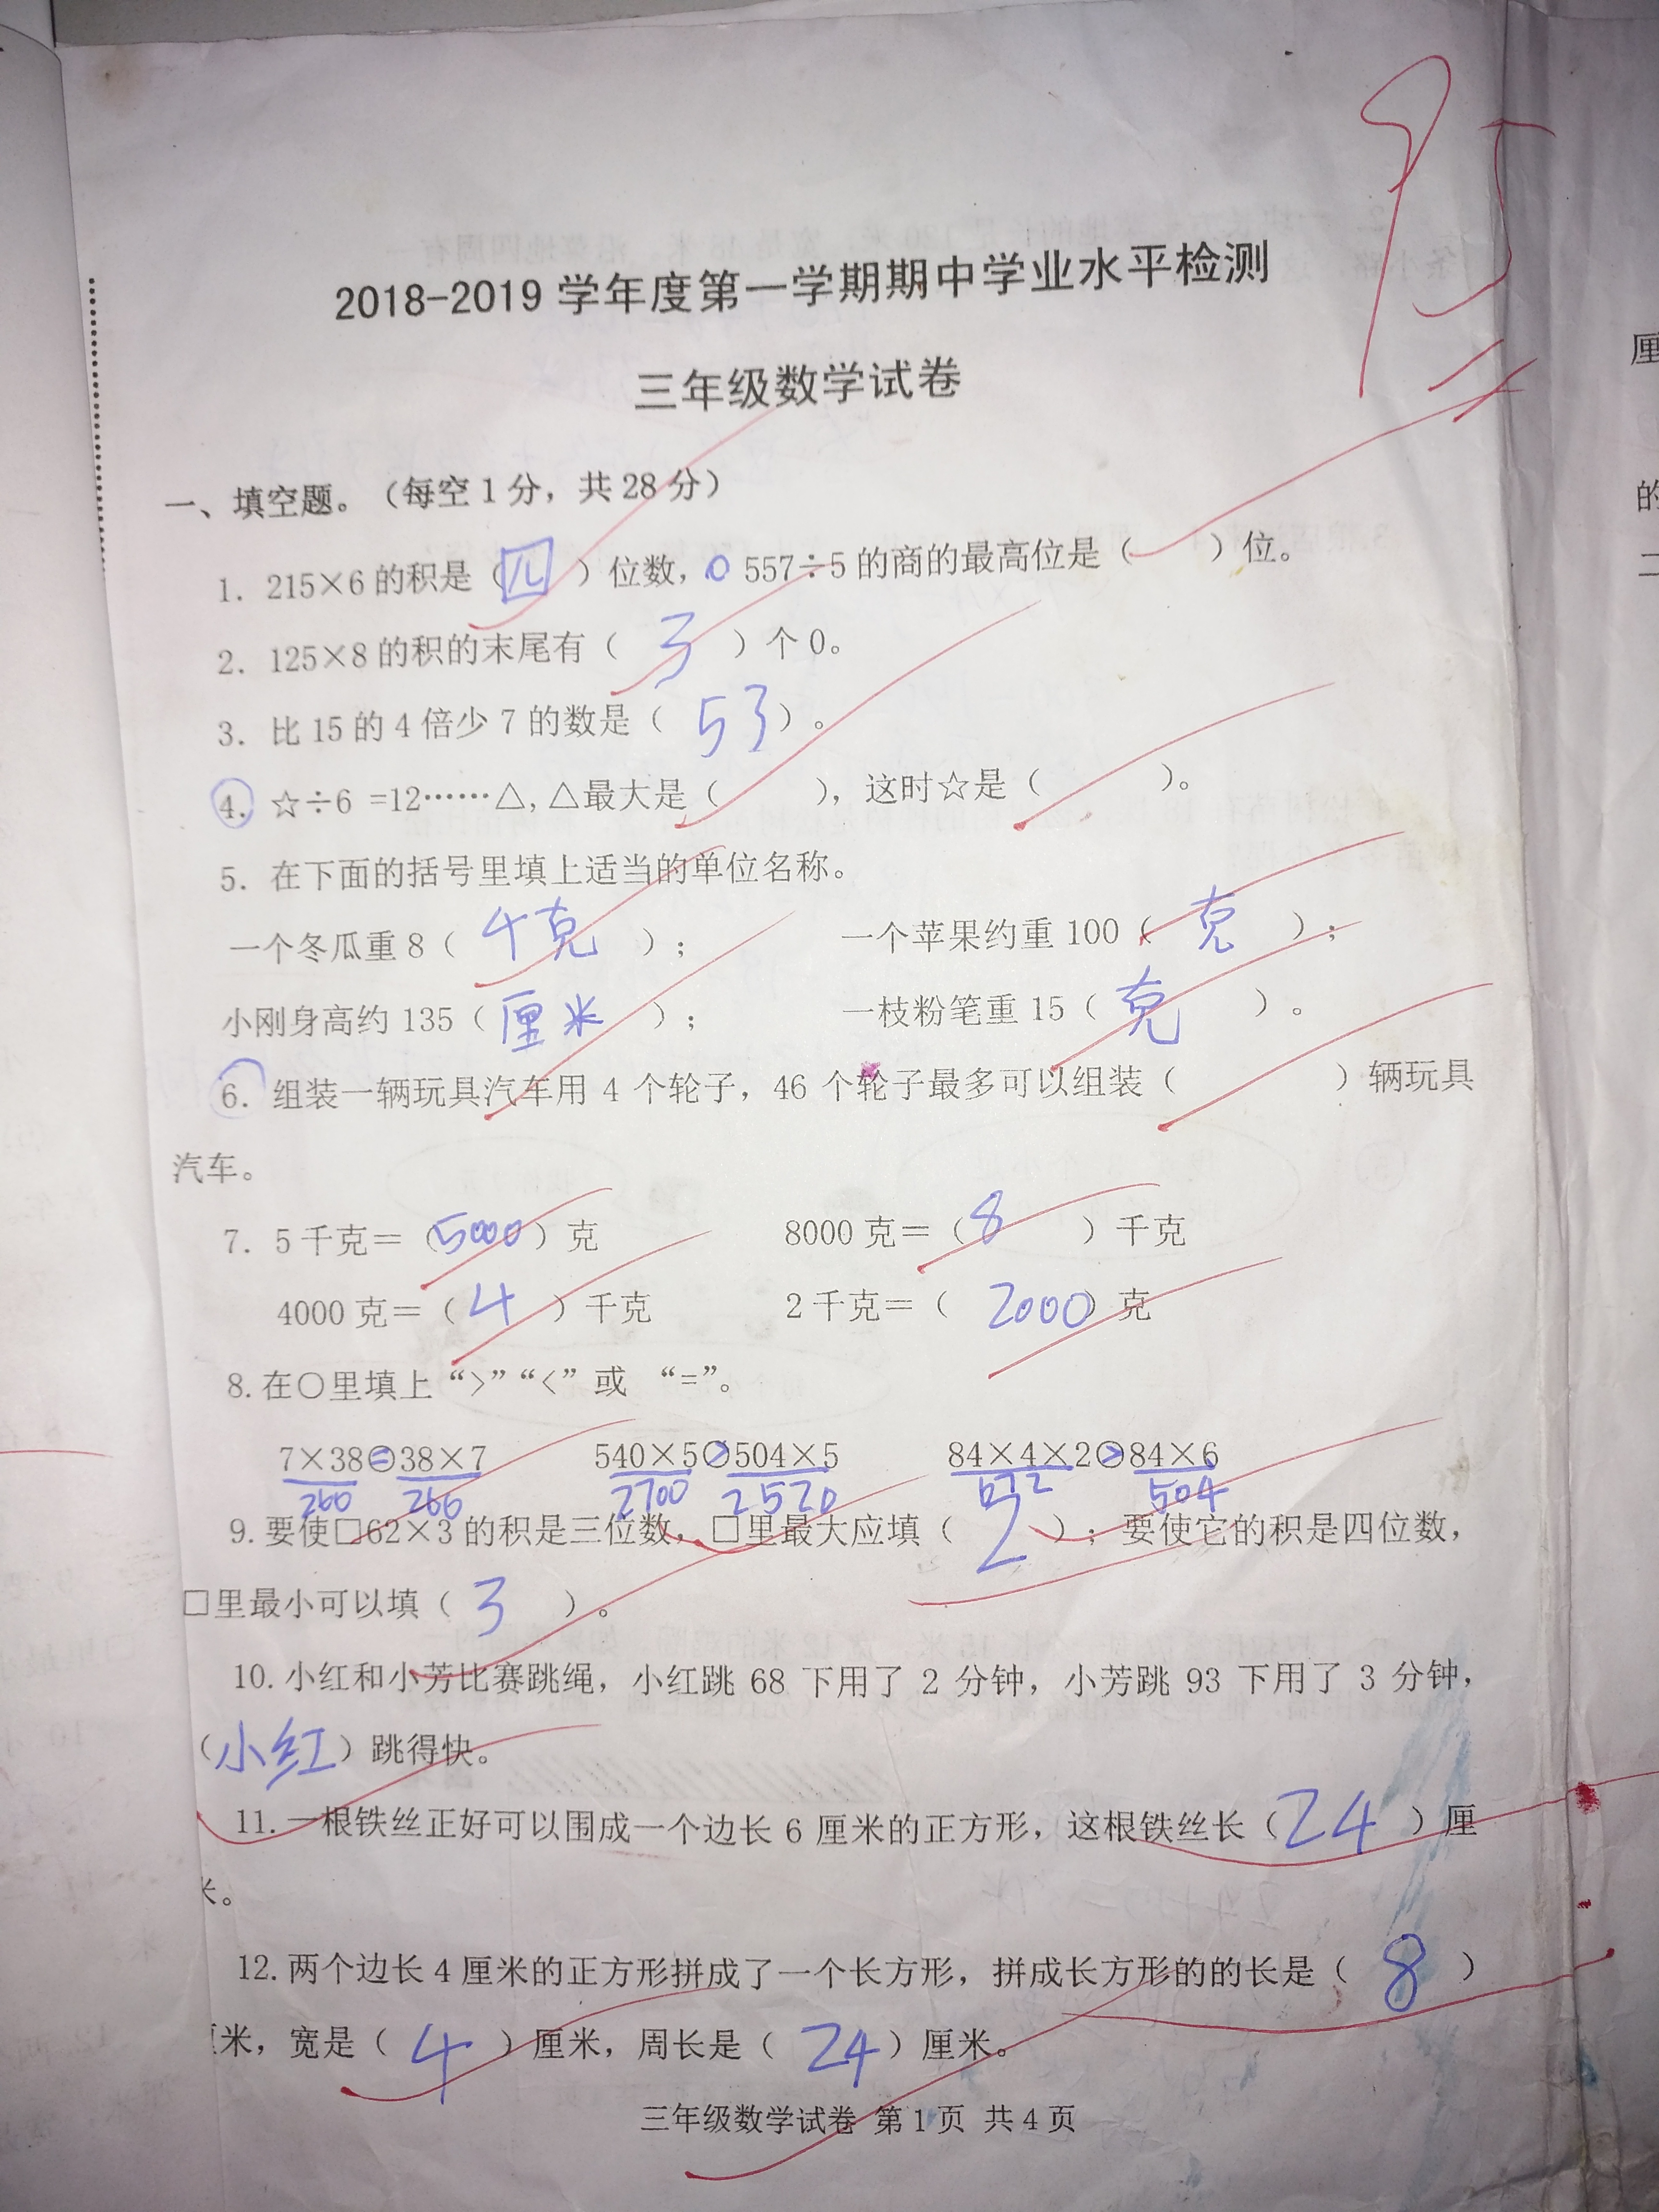 95
2018-2019 学年度第一学期期中学业水平检测
三年级数学试卷
一、填空题。（每空 1 分，共 28 分）
1. 215×6 的积是（四）位数，0 557÷5 的商的最高位是（ ）位。
2. 125×8 的积的末尾有（ 3 ）个 0。
3. 比 15 的 4 倍少 7 的数是（ 53 ）。
4. ☆÷6 =12……△, △最大是（ ），这时☆是（ ）。
5. 在下面的括号里填上适当的单位名称。
一个冬瓜重 8（ 千克 ）； 一个苹果约重 100（ 克 ）；
小刚身高约 135（ 厘米 ）； 一枝粉笔重 15（ 克 ）。
6. 组装一辆玩具汽车用 4 个轮子，46 个轮子最多可以组装（ ）辆玩具
汽车。
7. 5 千克＝（5000）克 8000 克＝（8 ）千克
4000 克＝（ 4 ）千克 2 千克＝（ 2000）克
8. 在○里填上 “>” “<” 或 “=”。
7×38=38×7 540×5>504×5 84×4×2>84×6
266 2700 2520 672 504
9. 要使□62×3 的积是三位数，□里最大应填（ 2 ）；要使它的积是四位数，
□里最小可以填（ 3 ）。
10. 小红和小芳比赛跳绳，小红跳 68 下用了 2 分钟，小芳跳 93 下用了 3 分钟，
（小红）跳得快。
11. 一根铁丝正好可以围成一个边长 6 厘米的正方形，这根铁丝长（24 ）厘
米。
12. 两个边长 4 厘米的正方形拼成了一个长方形，拼成长方形的的长是（ 8 ）
厘米，宽是（ 4 ）厘米，周长是（ 24）厘米。
三年级数学试卷 第 1 页 共 4 页
厘
的
二